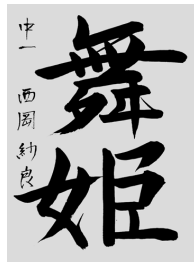 舞姫
中一 西岡 紗良